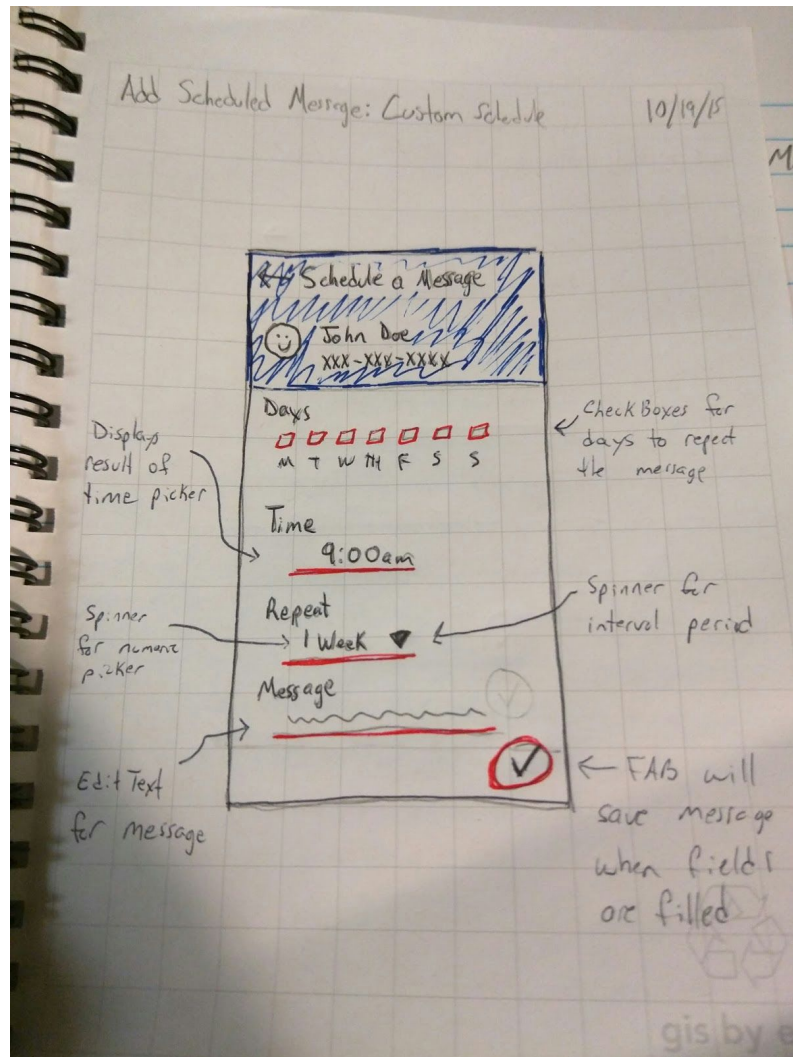 Add Scheduled Message: Custom Schedule
10/19/15
M
Schedule a Message
John Doe
xxx-xxx-xxxx
Days
M T W TH F S S
Check Boxes for
days to repeat
the message
Displays
result of
time picker
Time
9:00am
Repeat
1 Week
Spinner
for numeric
picker
Spinner for
interval period
Message
Edit Text
for message
FAB will
save message
when fields
are filled
gis by e